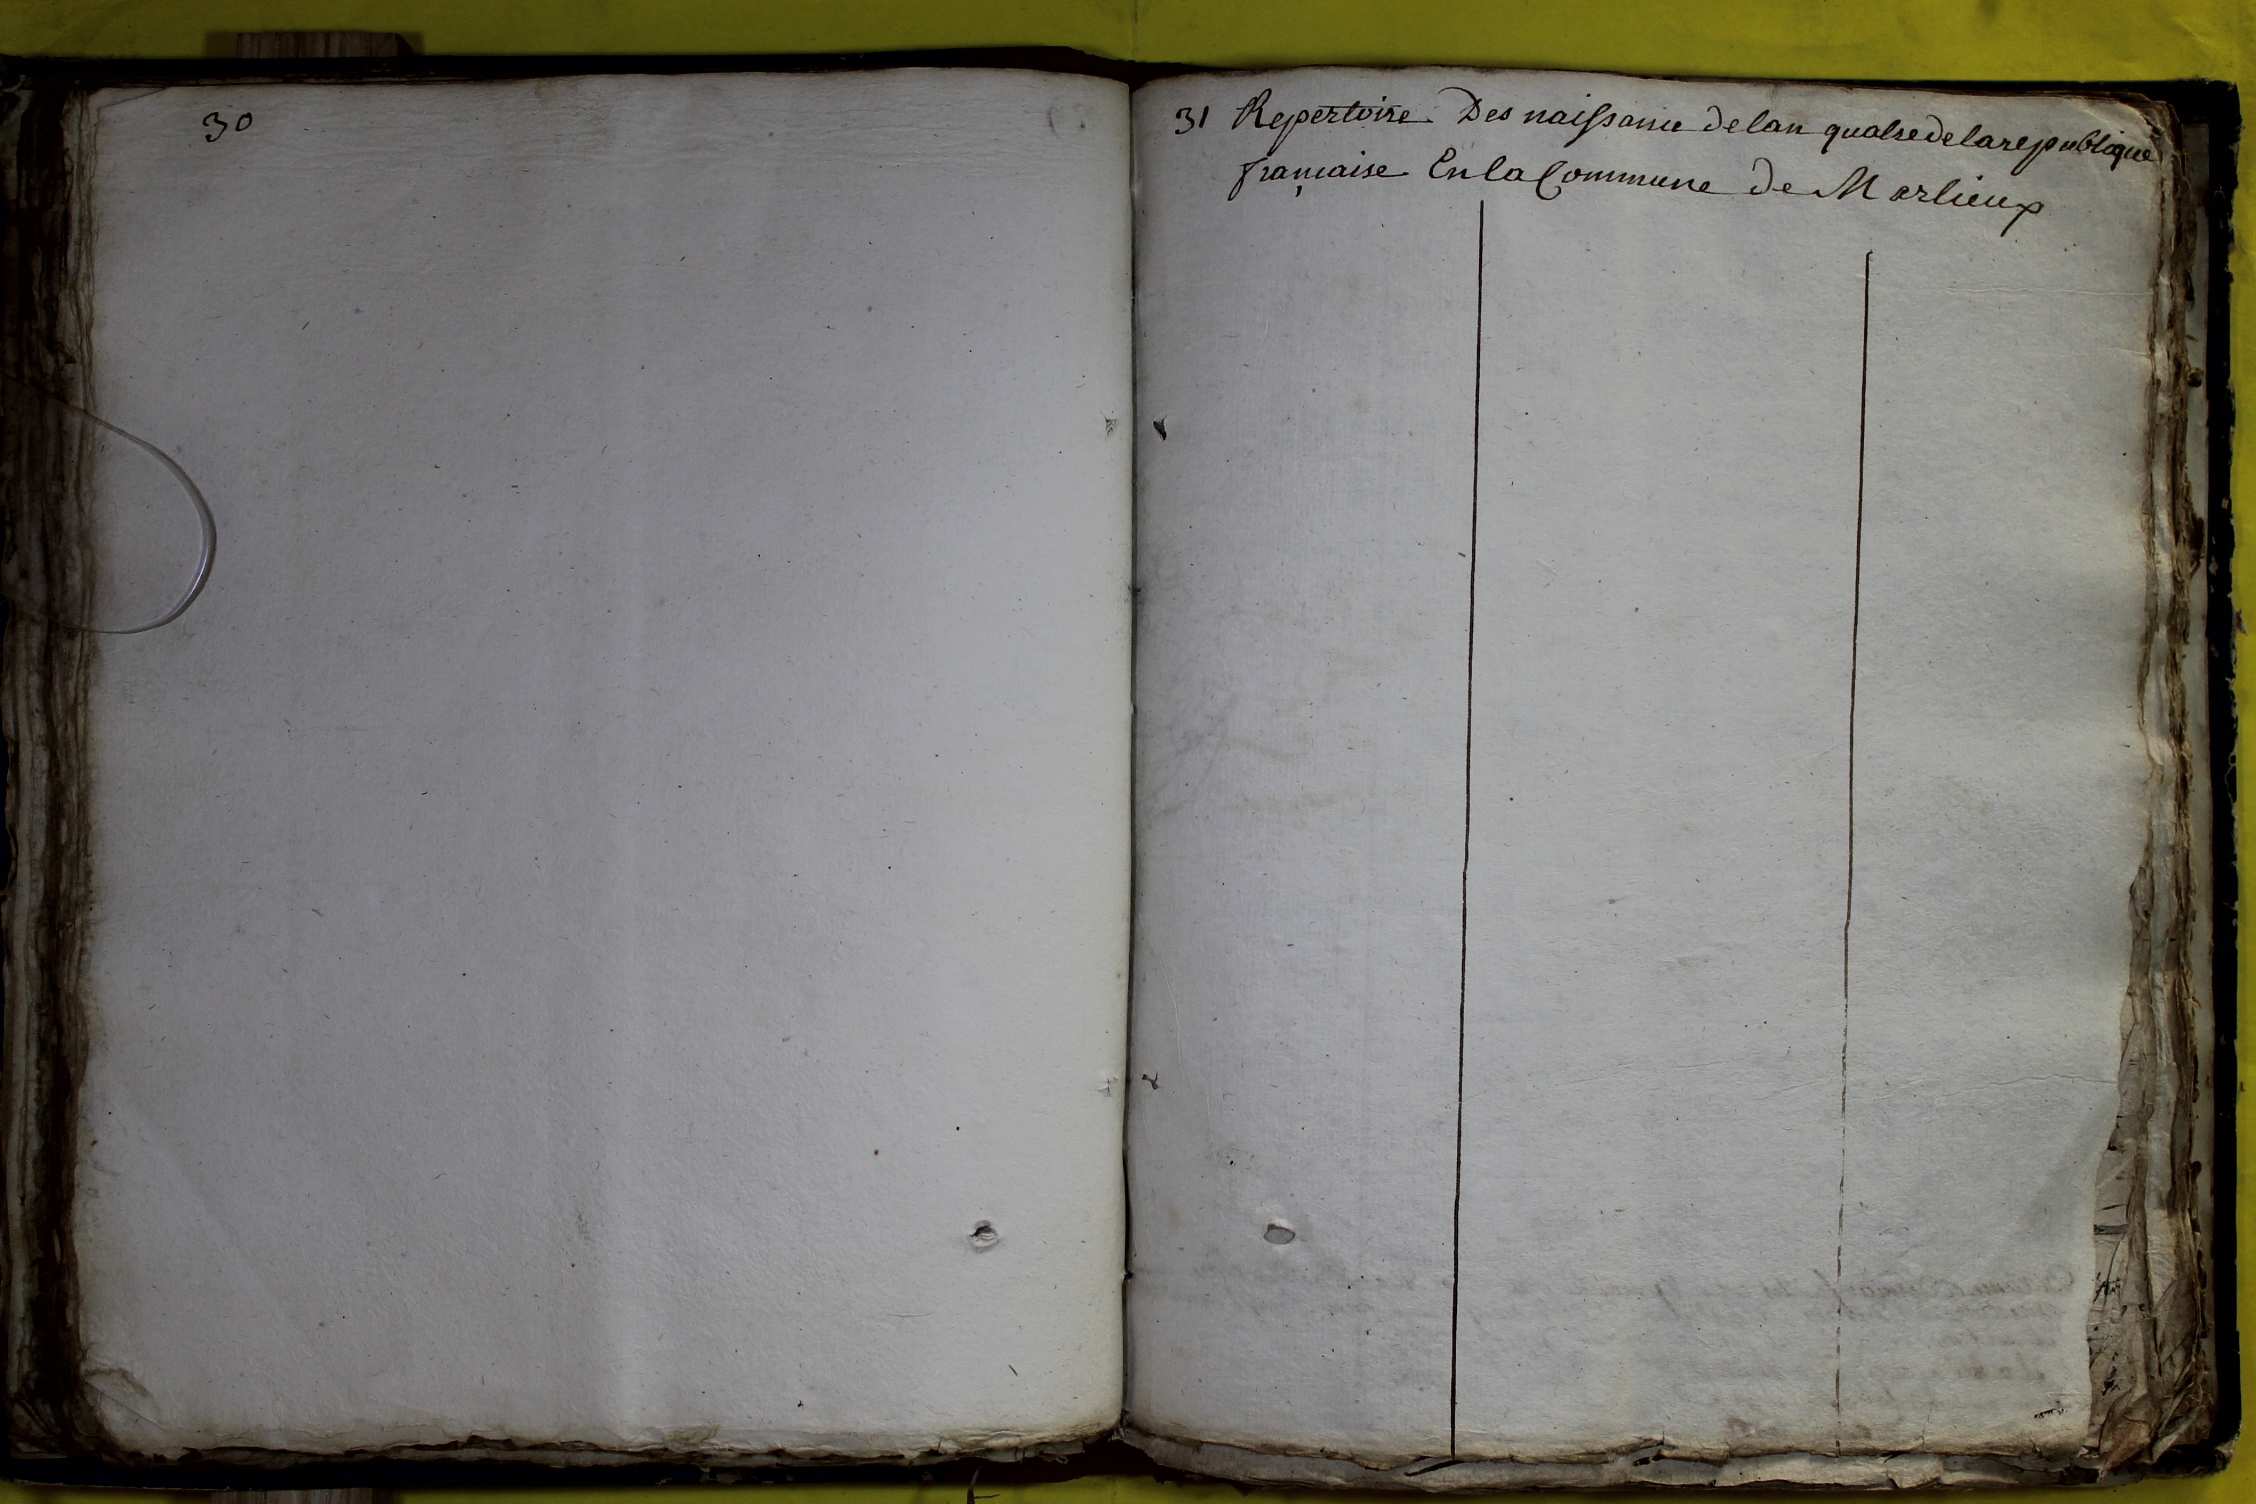 30
31 Repertoire Des naissance de lan quatre de la republique
française En la Commune de Marlieux